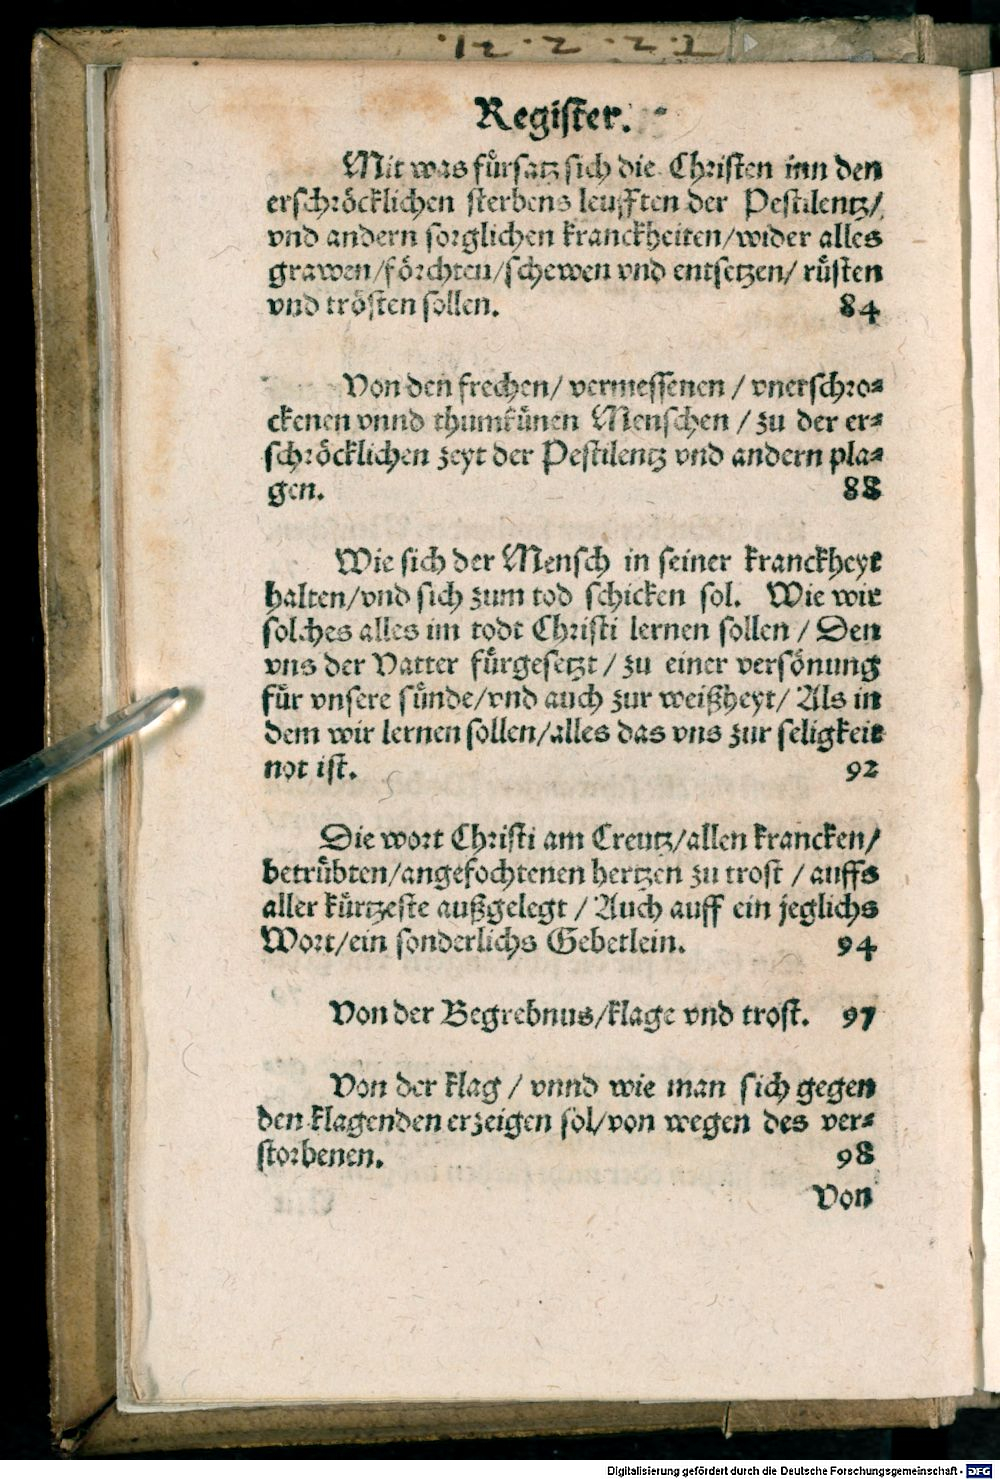 Register.
Mit was fürsatz sich die Christen inn den
erschröcklichen sterbens leufften der Pestilentz/
vnd andern sorglichen kranckheiten/wider alles
grawen/förchten/schewen vnd entsetzen/ rüsten
vnd trösten sollen. 84
Von den frechen/ vermessenen / vnerschro-
ckenen vnnd thumkünen Menschen / zu der er-
schröcklichen zeyt der Pestilentz vnd andern pla-
gen. 88
Wie sich der Mensch in seiner kranckheyt
halten/vnd sich zum tod schicken sol. Wie wir
solches alles im todt Christi lernen sollen / Den
vns der Vatter fürgesetzt / zu einer versönung
für vnsere sünde/vnd auch zur weißheyt/ Als in
dem wir lernen sollen/alles das vns zur seligkeit
not ist. 92
Die wort Christi am Creutz/allen krancken/
betrübten/angefochtenen hertzen zu trost / auffs
aller kürtzeste außgelegt / Auch auff ein jeglichs
Wort/ein sonderlichs Gebetlein. 94
Von der Begrebnus/klage vnd trost. 97
Von der klag / vnnd wie man sich gegen
den klagenden erzeigen sol/von wegen des ver-
storbenen. 98
Von
Digitalisierung gefördert durch die Deutsche Forschungsgemeinschaft - DFG